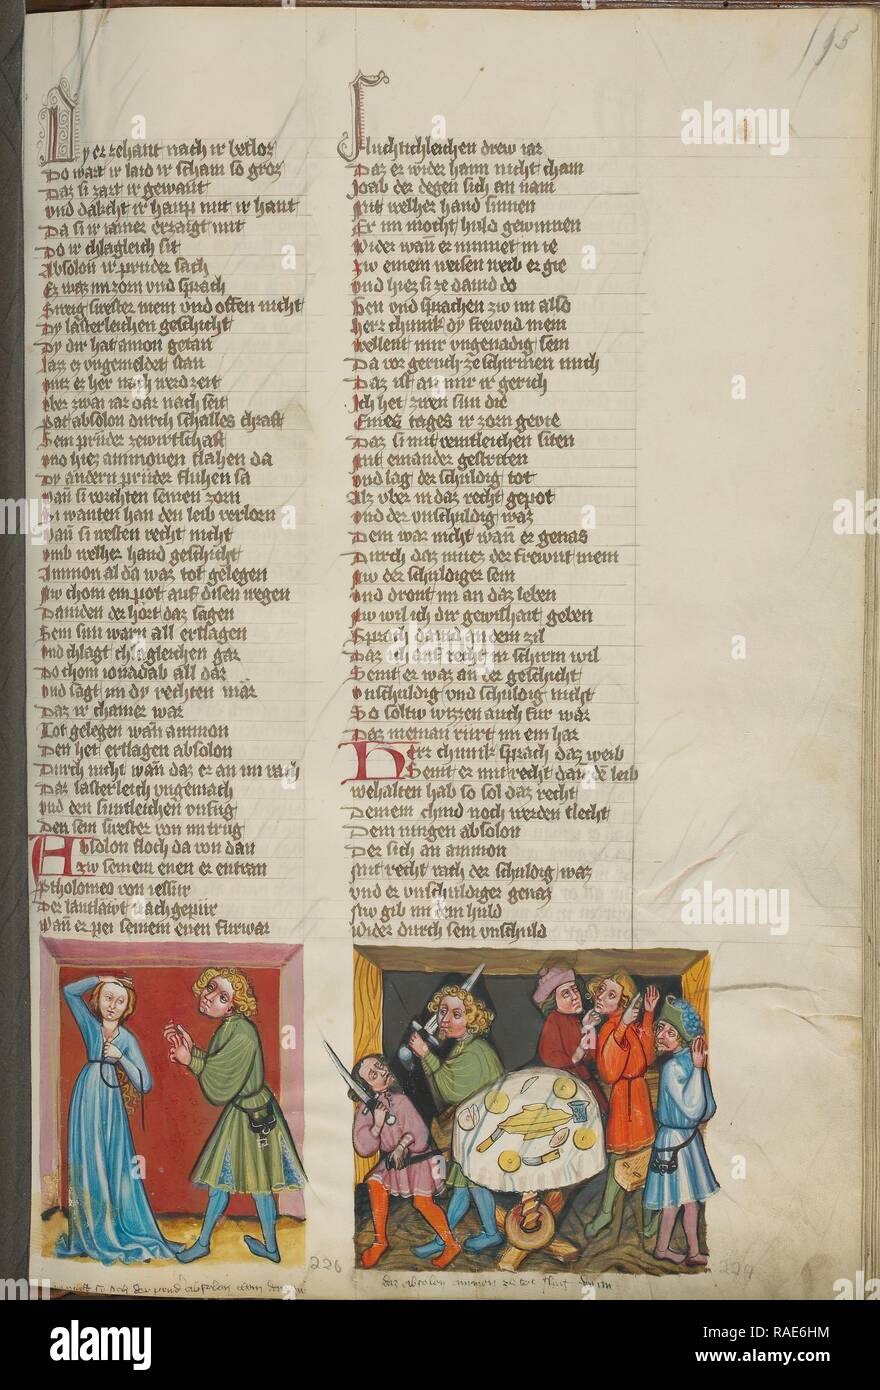 195
Do wart ir laid ir scham so groz
Daz si zart ir gewant
Da si ir iamer erzaigt mit
Do ir chlagleich sit
Absolon ir pruder sach
Er waz im zorn vnd sprach
Sweig swester mein vnd offen nicht
Dy lasterleichen geschicht
Dy dir hat amon getan
Laz ez vngemeldet stan
Vber zwai iar dar nach seit
Pat absolon durch schalles chraft
Sein pruder ze wirtschaft
Vnd hiez ammonen slahen da
Dy andern pruder fluhen sa
Wan si vorchten seinen zorn
Si wanten han den leib verlorn
Wan si westen recht nicht
Vmb welher hand geschicht
Ammon al da waz tot gelegen
Nw chom enpot auf disen wegen
Dauiden der hort daz sagen
Sein sun warn all erslagen
Vnd chlagt chlagleichen gar
Do chom ionadab all dar
Vnd sagt im dy rechten mär
Daz ir chainer wär
Tot gelegen wan ammon
Den het erslagen absolon
Durch nicht wan daz er an im rach
Daz lasterleich vngemach
Vnd den suntleichen vnfug
Den sein swester von im trug
Absolon floch da von dan
Zw seinem enen er entran
Ptholomeo von iessur
Wan er pei seinem enen furwar
Fluchtichleichen drew iar
Daz er wider haim nicht cham
Joab der degen sich an nam
Mit welher hand sinnen
Er im mocht huld gewinnen
Wider wan er minnet in ie
Zw einem weisen weib er gie
Vnd hiez si ze dauid do
Gen vnd sprachen zw im also
Herr chunik dy frewnd mein
Wellent mir vngenadig sein
Da vor geruch ze schirmen mich
Daz ist an mir ir gerich
Ich het zwen sun die
Eines tages ir zorn gevie
Daz si mit veintleichen siten
Mit einander gestriten
Vnd lag der schuldig tot
Alz vber in daz recht gepot
Vnd der vnschuldig waz
Dem war nicht wan er genas
Durch daz muez der frewnt mein
Nw der schuldiger sein
Vnd dront im an daz leben
Nw wil ich dir gewishait geben
Sprach dauid an dem zil
Daz ich auf recht in schirm wil
Seint er waz an der geschicht
Vnschuldig vnd schuldig nicht
So soltw wizzen auch fur war
Daz nieman rürt im ein har
Herr chunik sprach daz weib
Seint er mit recht dan den leib
Wehalten hab so sol daz recht
Deinem chind noch werden slecht
Dem iungen absolon
Der sich an ammon
Mit recht rach der schuldig waz
Vnd er vnschuldiger genaz
Nw gib im dein huld
Wider durch sein vnschuld
226
227
daz absolon ammon ze tot slug
alamy
Image ID: RAE6HM
www.alamy.com